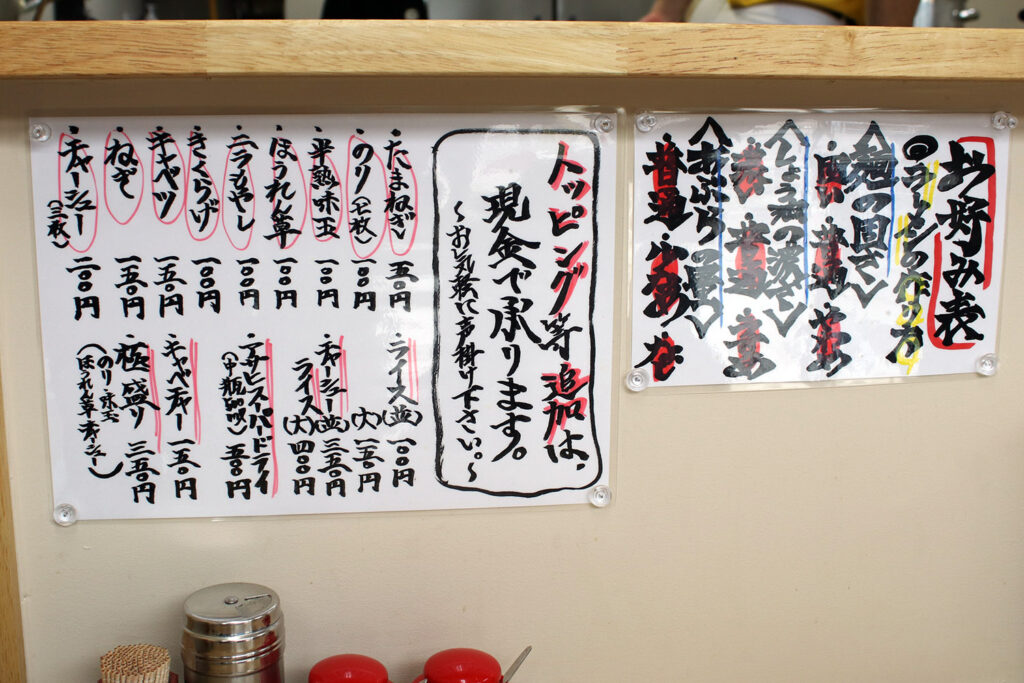 お好み表
◎ラーメンの作り方
〈麺の固さ〉
〈しょう油の濃さ〉
〈あぶらの量〉
普通 少なめ
トッピング等追加は、
現金で承ります。
〜お気軽に声掛け下さい。〜
・たまねぎ 五〇円
・のり(七枚) 一〇〇円
・半熟味玉 一〇〇円
・ほうれん草 一〇〇円
・ニラもやし 一〇〇円
・きくらげ 一〇〇円
・キャベツ 一五〇円
・ねぎ 一五〇円
・チャーシュー(三枚) 二〇〇円
・ライス(並) 一〇〇円
(大) 一五〇円
・チャーシュー(並) 三五〇円
ライス(大) 四〇〇円
・アサヒスーパードライ
(中瓶500ml) 五〇〇円
・キャベチャー 一五〇円
・極盛り 三五〇円
(のり・味玉
ほうれん草・チャーシュー)